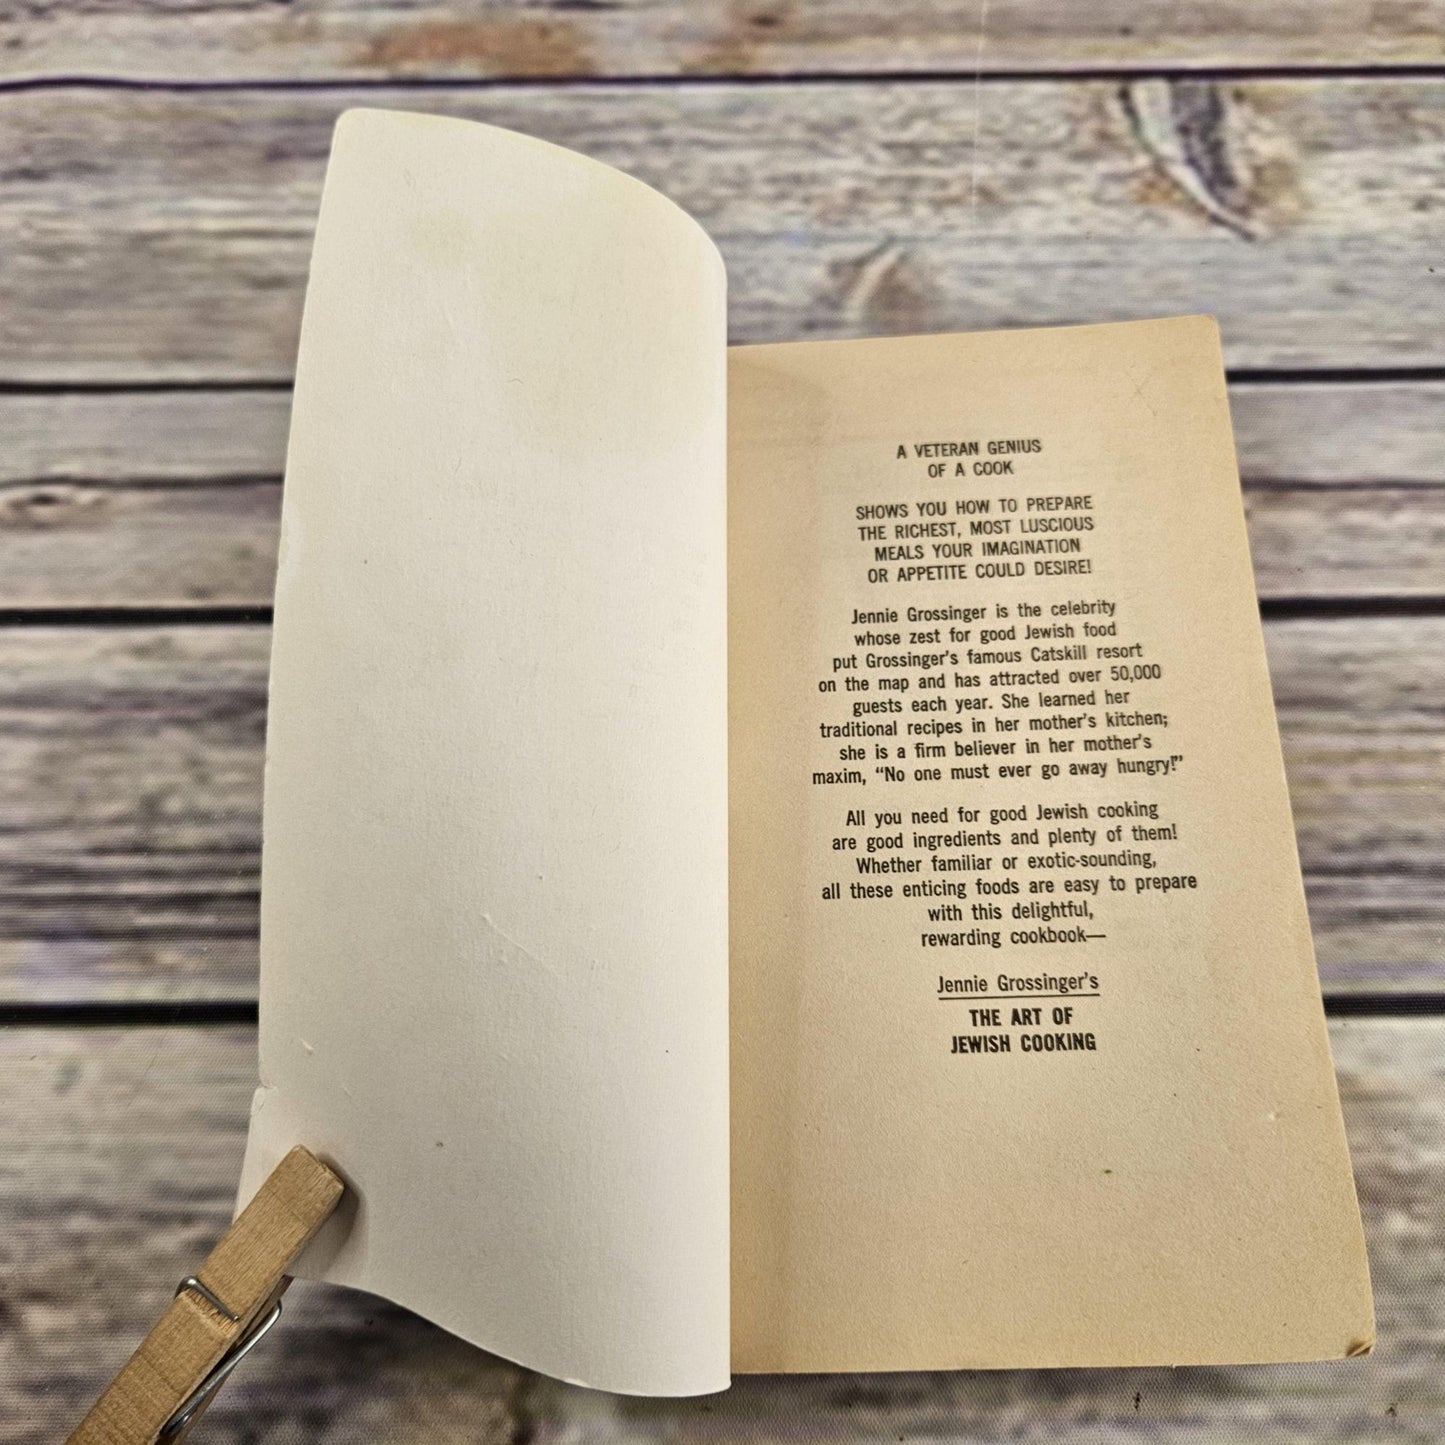 A VETERAN GENIUS
OF A COOK
SHOWS YOU HOW TO PREPARE
THE RICHEST, MOST LUSCIOUS
MEALS YOUR IMAGINATION
OR APPETITE COULD DESIRE!
Jennie Grossinger is the celebrity
whose zest for good Jewish food
put Grossinger's famous Catskill resort
on the map and has attracted over 50,000
guests each year. She learned her
traditional recipes in her mother's kitchen;
she is a firm believer in her mother's
maxim, “No one must ever go away hungry!”
All you need for good Jewish cooking
are good ingredients and plenty of them!
Whether familiar or exotic-sounding,
all these enticing foods are easy to prepare
with this delightful,
rewarding cookbook—
Jennie Grossinger's
THE ART OF
JEWISH COOKING